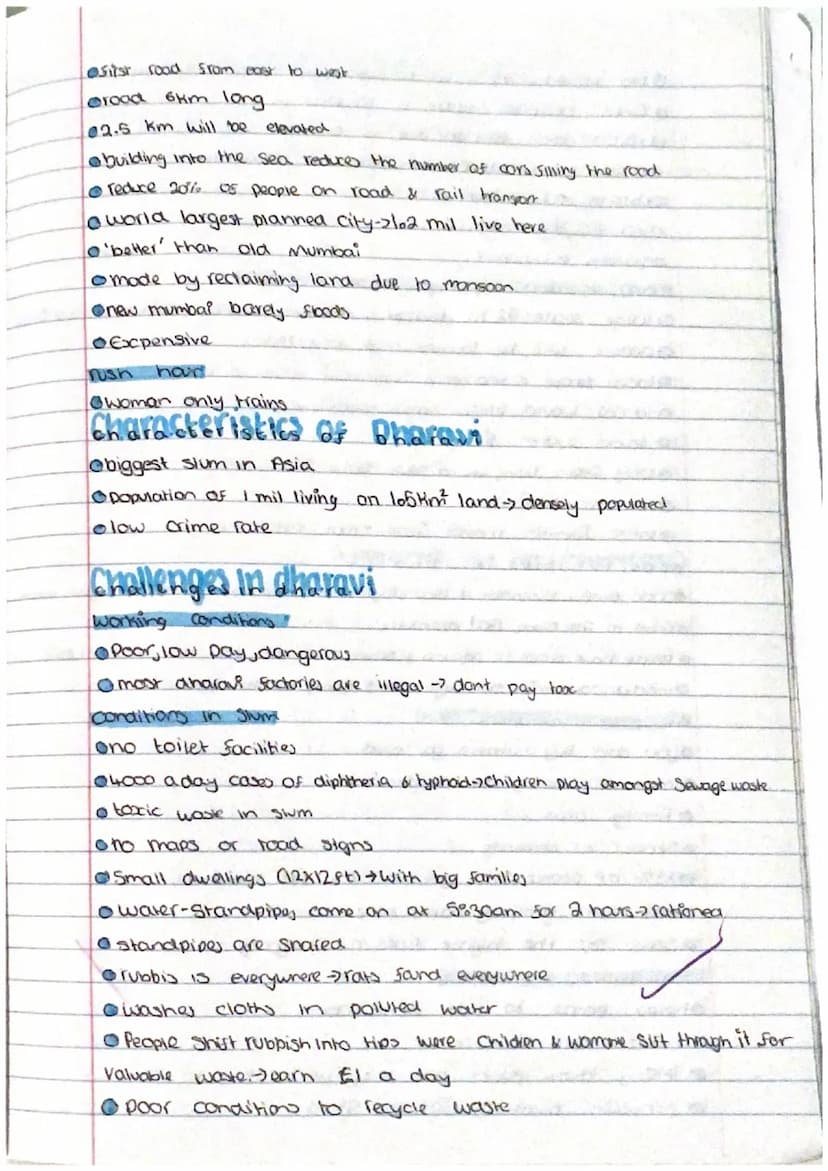 •first road from east to west
•road 6km long
•2.5 km will be elevated
•building into the sea reduces the number of cars filling the road
•reduce 20% of people on road & rail transport
•world largest planned city->1.2 mil live here
•'better' than old Mumbai
•made by reclaiming land due to monsoon
•new mumbai barely floods
•Expensive
rush hour
•woman only trains
Characteristics of Dharavi
•biggest slum in Asia
•population of 1 mil living on 1.5km² land→ densely populated
•low crime rate
Challenges in dharavi
Working conditions
•Poor, low pay, dangerous
•most dharavi factories are illegal -> dont pay tax
conditions in slum
•no toilet facilities
•4000 a day cases of diphtheria & typhoid->Children play amongst Sewage waste
•toxic waste in slum
•no maps or road signs
•Small dwellings (12x12ft)→with big families
•water-Standpipes come on at 5:30am for 2 hours->rationed
•standpipes are shared
•rubbis is everywhere→rats fand everywhere
•washes cloths in polluted water
•People shift rubbish into tips were children & womone sift through it for
valuable waste.→earn £1 a day
•poor conditions to recycle waste